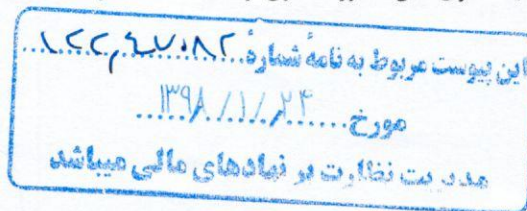 این پیوست مربوط به نامهٔ شمارهٔ
مورخ ۱۳۹۸/۱/۲۴
مدیریت نظارت بر نهادهای مالی میباشد